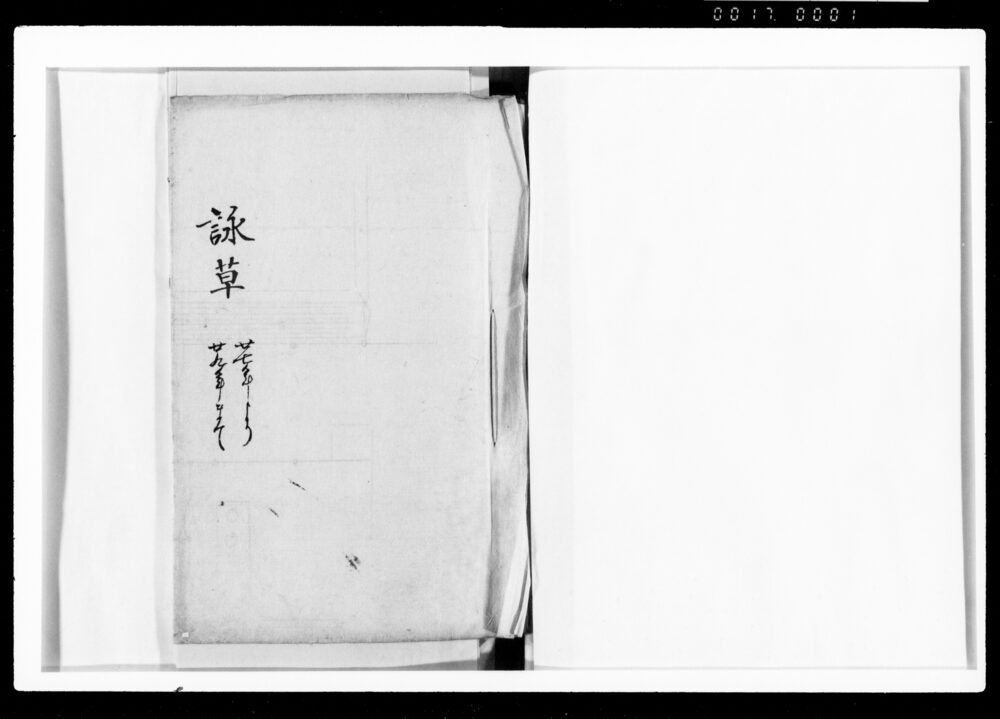 0017. 0001
詠草
廿七年より
廿九年まて